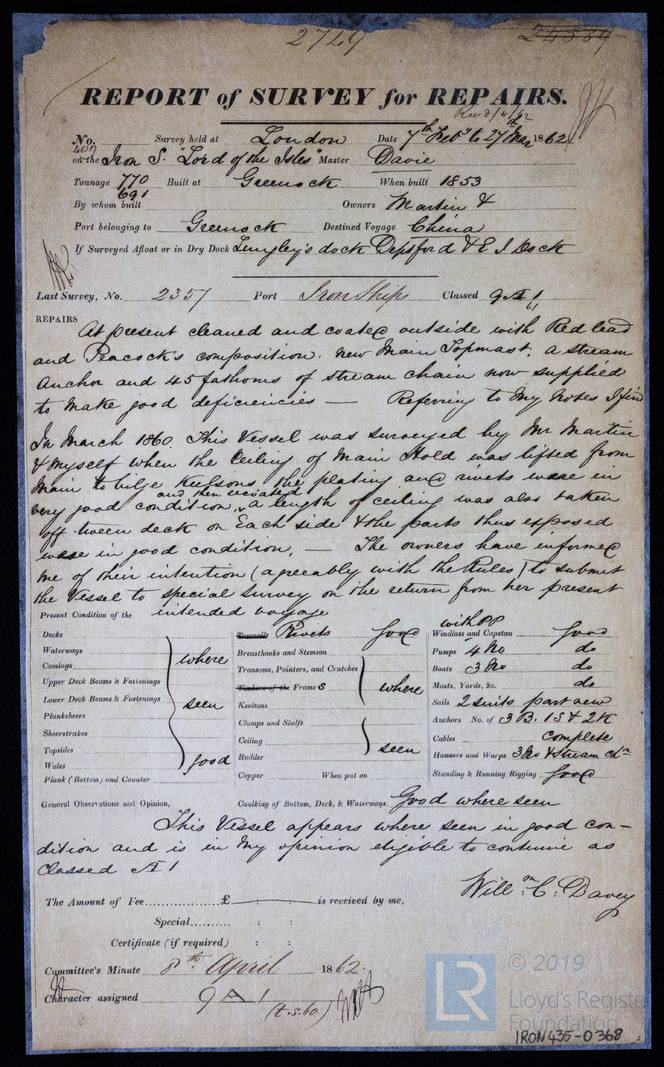 2729
24389
REPORT of SURVEY for REPAIRS.
Rec'd 8/4/62
No. Survey held at London Date 7th Feby to 27th Mar 1862
on the Iron S. "Lord of the Isles" Master Davie
Tonnage 770 Built at Greenock When built 1853
691
By whom built Owners Martin &
Port belonging to Greenock Destined Voyage China
If Surveyed Afloat or in Dry Dock Lungley's dock Deptford & E I Dock
Last Survey, No. 2357 Port Iron Ships Classed 9 A 1
61
REPAIRS
At present cleaned and coated outside with Red lead
and Peacock's composition. new Main Topmast. a stream
Anchor and 45 fathoms of stream chain now supplied
to make good deficiencies — Referring to my notes I find
In March 1860 This Vessel was surveyed by Mr Martin
& myself when the Ceiling of Main Hold was lifted from
Main to bilge Keelsons the plating and rivets were in
and then
very good condition, a length of ceiling was also taken
off tween deck on Each side & the parts thus exposed
were in good condition. — The owners have informed
me of their intention (agreeably with the Rules) to submit
the Vessel to special survey on the return from her present
Present Condition of the intended voyage
Decks
Waterways
Comings
Upper Deck Beams & Fastenings
Lower Deck Beams & Fastenings
Planksheers
Sheerstrakes
Topsides
Wales
Plank (Bottom) and Counter
where
seen
good
Treenails Rivets good
Breasthooks and Stemson
Transoms, Pointers, and Crutches
Timbers of the Frames
Keelsons
Clamps and Shelfs
Ceiling
Rudder
where
seen
Copper When put on
with PP
Windlass and Capstan good
Pumps 4 No do
Boats 3 No do
Masts, Yards, &c. do
Sails 2 suits part new
Anchors No. of 3 B. 1 S & 2 K
Cables complete
Hawsers and Warps 3 No & Stream Chn
Standing & Running Rigging good
General Observations and Opinion, Caulking of Bottom, Deck, & Waterways. Good where seen
This Vessel appears where seen in good con-
dition and is in my opinion eligible to continue as
Classed A 1
Willm. C. Davey
The Amount of Fee............... £ : : is received by me,
Special......... : :
Certificate (if required) : :
Committee's Minute 8th April 1862.
Character assigned 9 A 1
LR
© 2019
Lloyd's Registe
Foundation
IRON435-0368